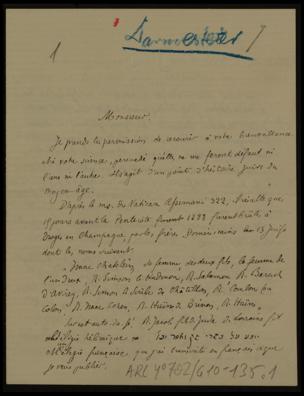 1
Darmesteter
7
Monsieur,
Je prends la permission de recourir à votre bienveillance
et à votre science, persuadé qu'elles ne me feront défaut ni
l'une ni l'autre. Il s'agit d'un point d'histoire juive du
moyen-âge.
D'après le ms. du Vatican Assemani 322, il résulte que,
15 jours avant la Pentecôte furent 1288 furent brûlés à
Troyes en Champagne, par les frères Dominicains 13 Juifs
dont les noms suivent:
"Isaac Chatelain, sa femme, ses deux fils, la femme de
l'un d'eux, R. Simson, R. Salomon, R. Baruch
d'Avirey, R. Simon, de Châtillon, R. Colon
Colon", R. Isaac Cohen, R. Haïm de Brinon, R. Haïm,
R. Jacob fit
hébraïque
française, que
je vais publier.
ARL Nº702/G10-135.1